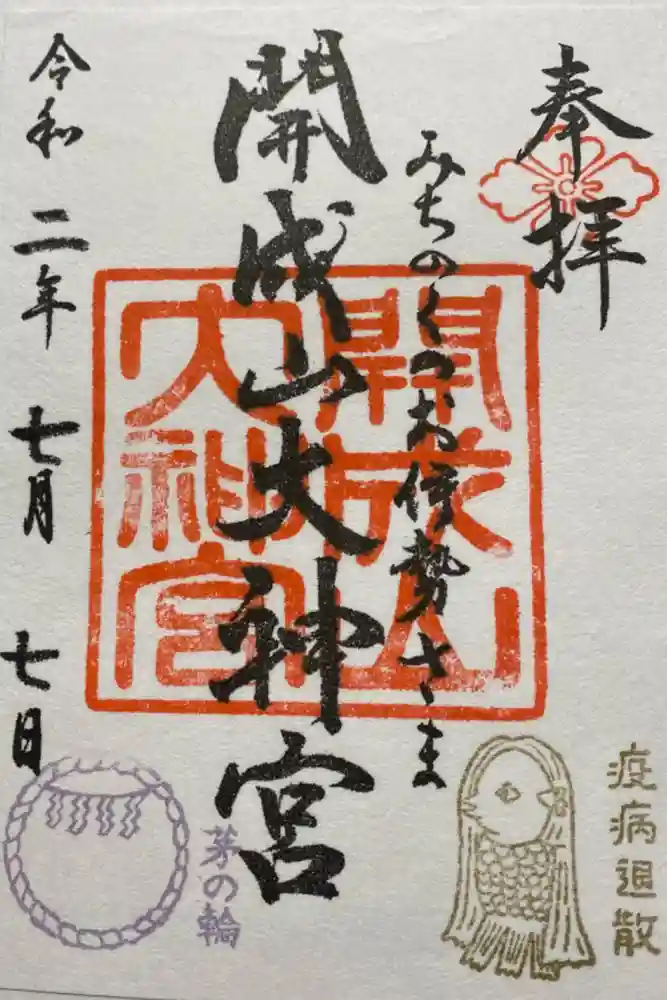 奉拝
みちのくのお伊勢さま
開成山大神宮
開成山
大神宮
令和二年七月七日
芽の輪
疫病退散